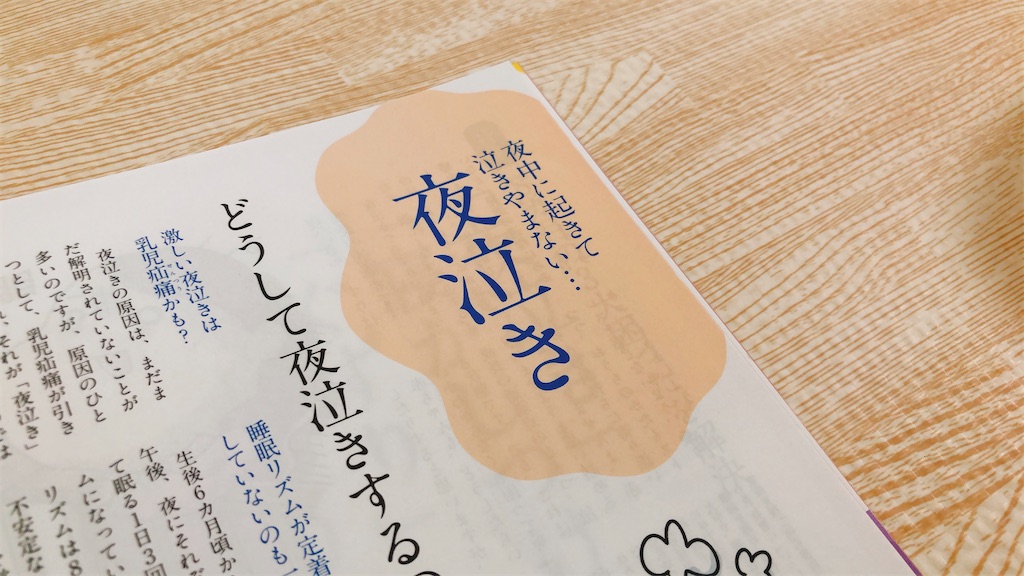 夜中に起きて
泣きやまない…
夜泣き
どうして夜泣きする
激しい夜泣きは
乳児疝痛かも?
夜泣きの原因は、まだま
だ解明されていないことが
多いのですが、原因のひと
つとして、乳児疝痛が引き
それが「夜泣き」
睡眠リズムが定着
していないのも一
生後6カ月頃か
午後、夜にそれぞ
て眠る1日3回
ムになってい
リズムは8
不安定な